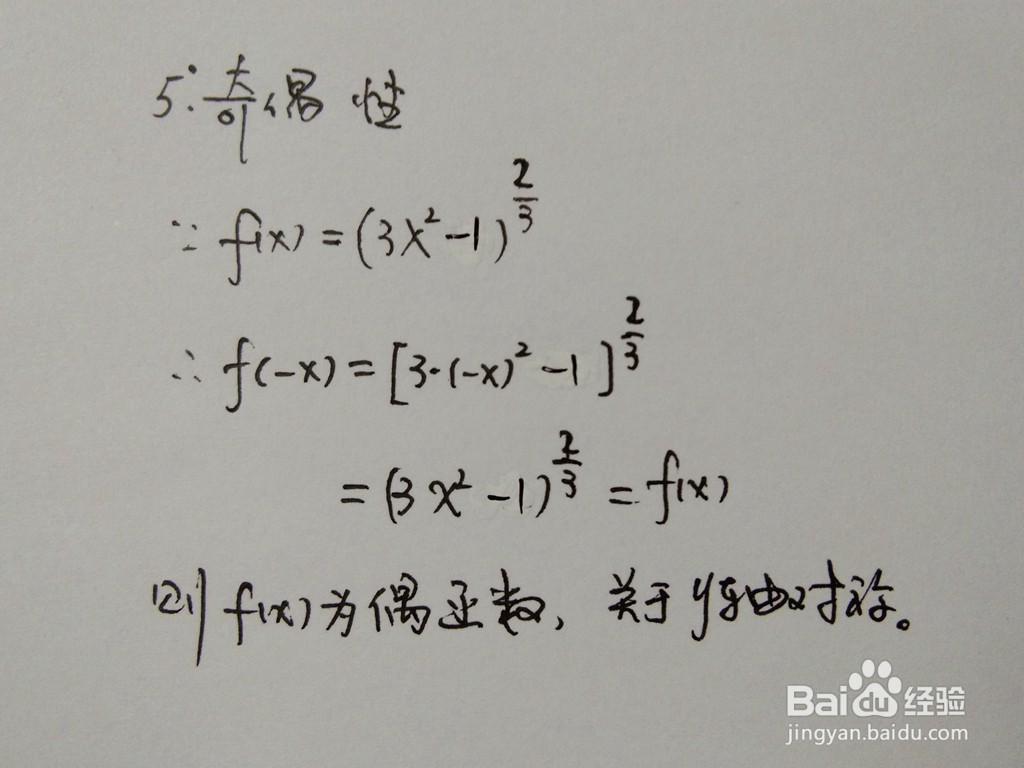 5°.奇偶性
∵ f(x) = (3x²-1)^{2/3}
∴ f(-x) = [3·(-x)²-1]^{2/3}
= (3x²-1)^{2/3} = f(x)
则f(x)为偶函数, 关于y轴对称。
Bai du 经验
jingyan.baidu.com